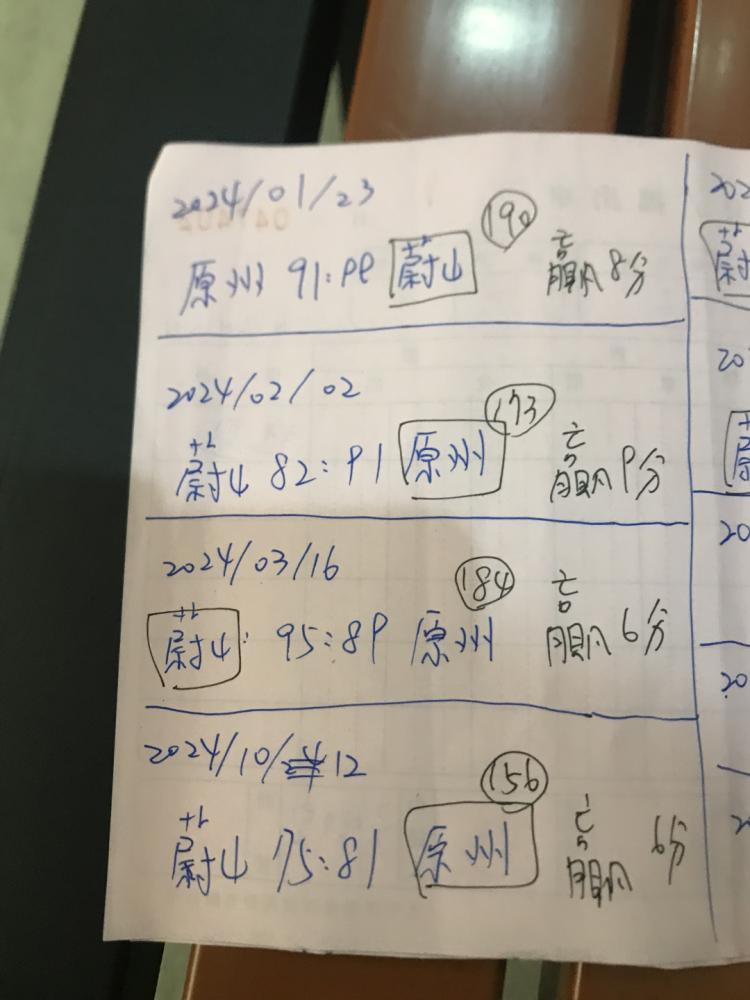 2024/01/23
190
原州 91:99 蔚山 赢8分
2024/02/02
173
蔚山 82:91 原州 赢9分
2024/03/16
184
蔚山 95:89 原州 赢6分
2024/10/12
156
蔚山 75:81 原州 赢6分